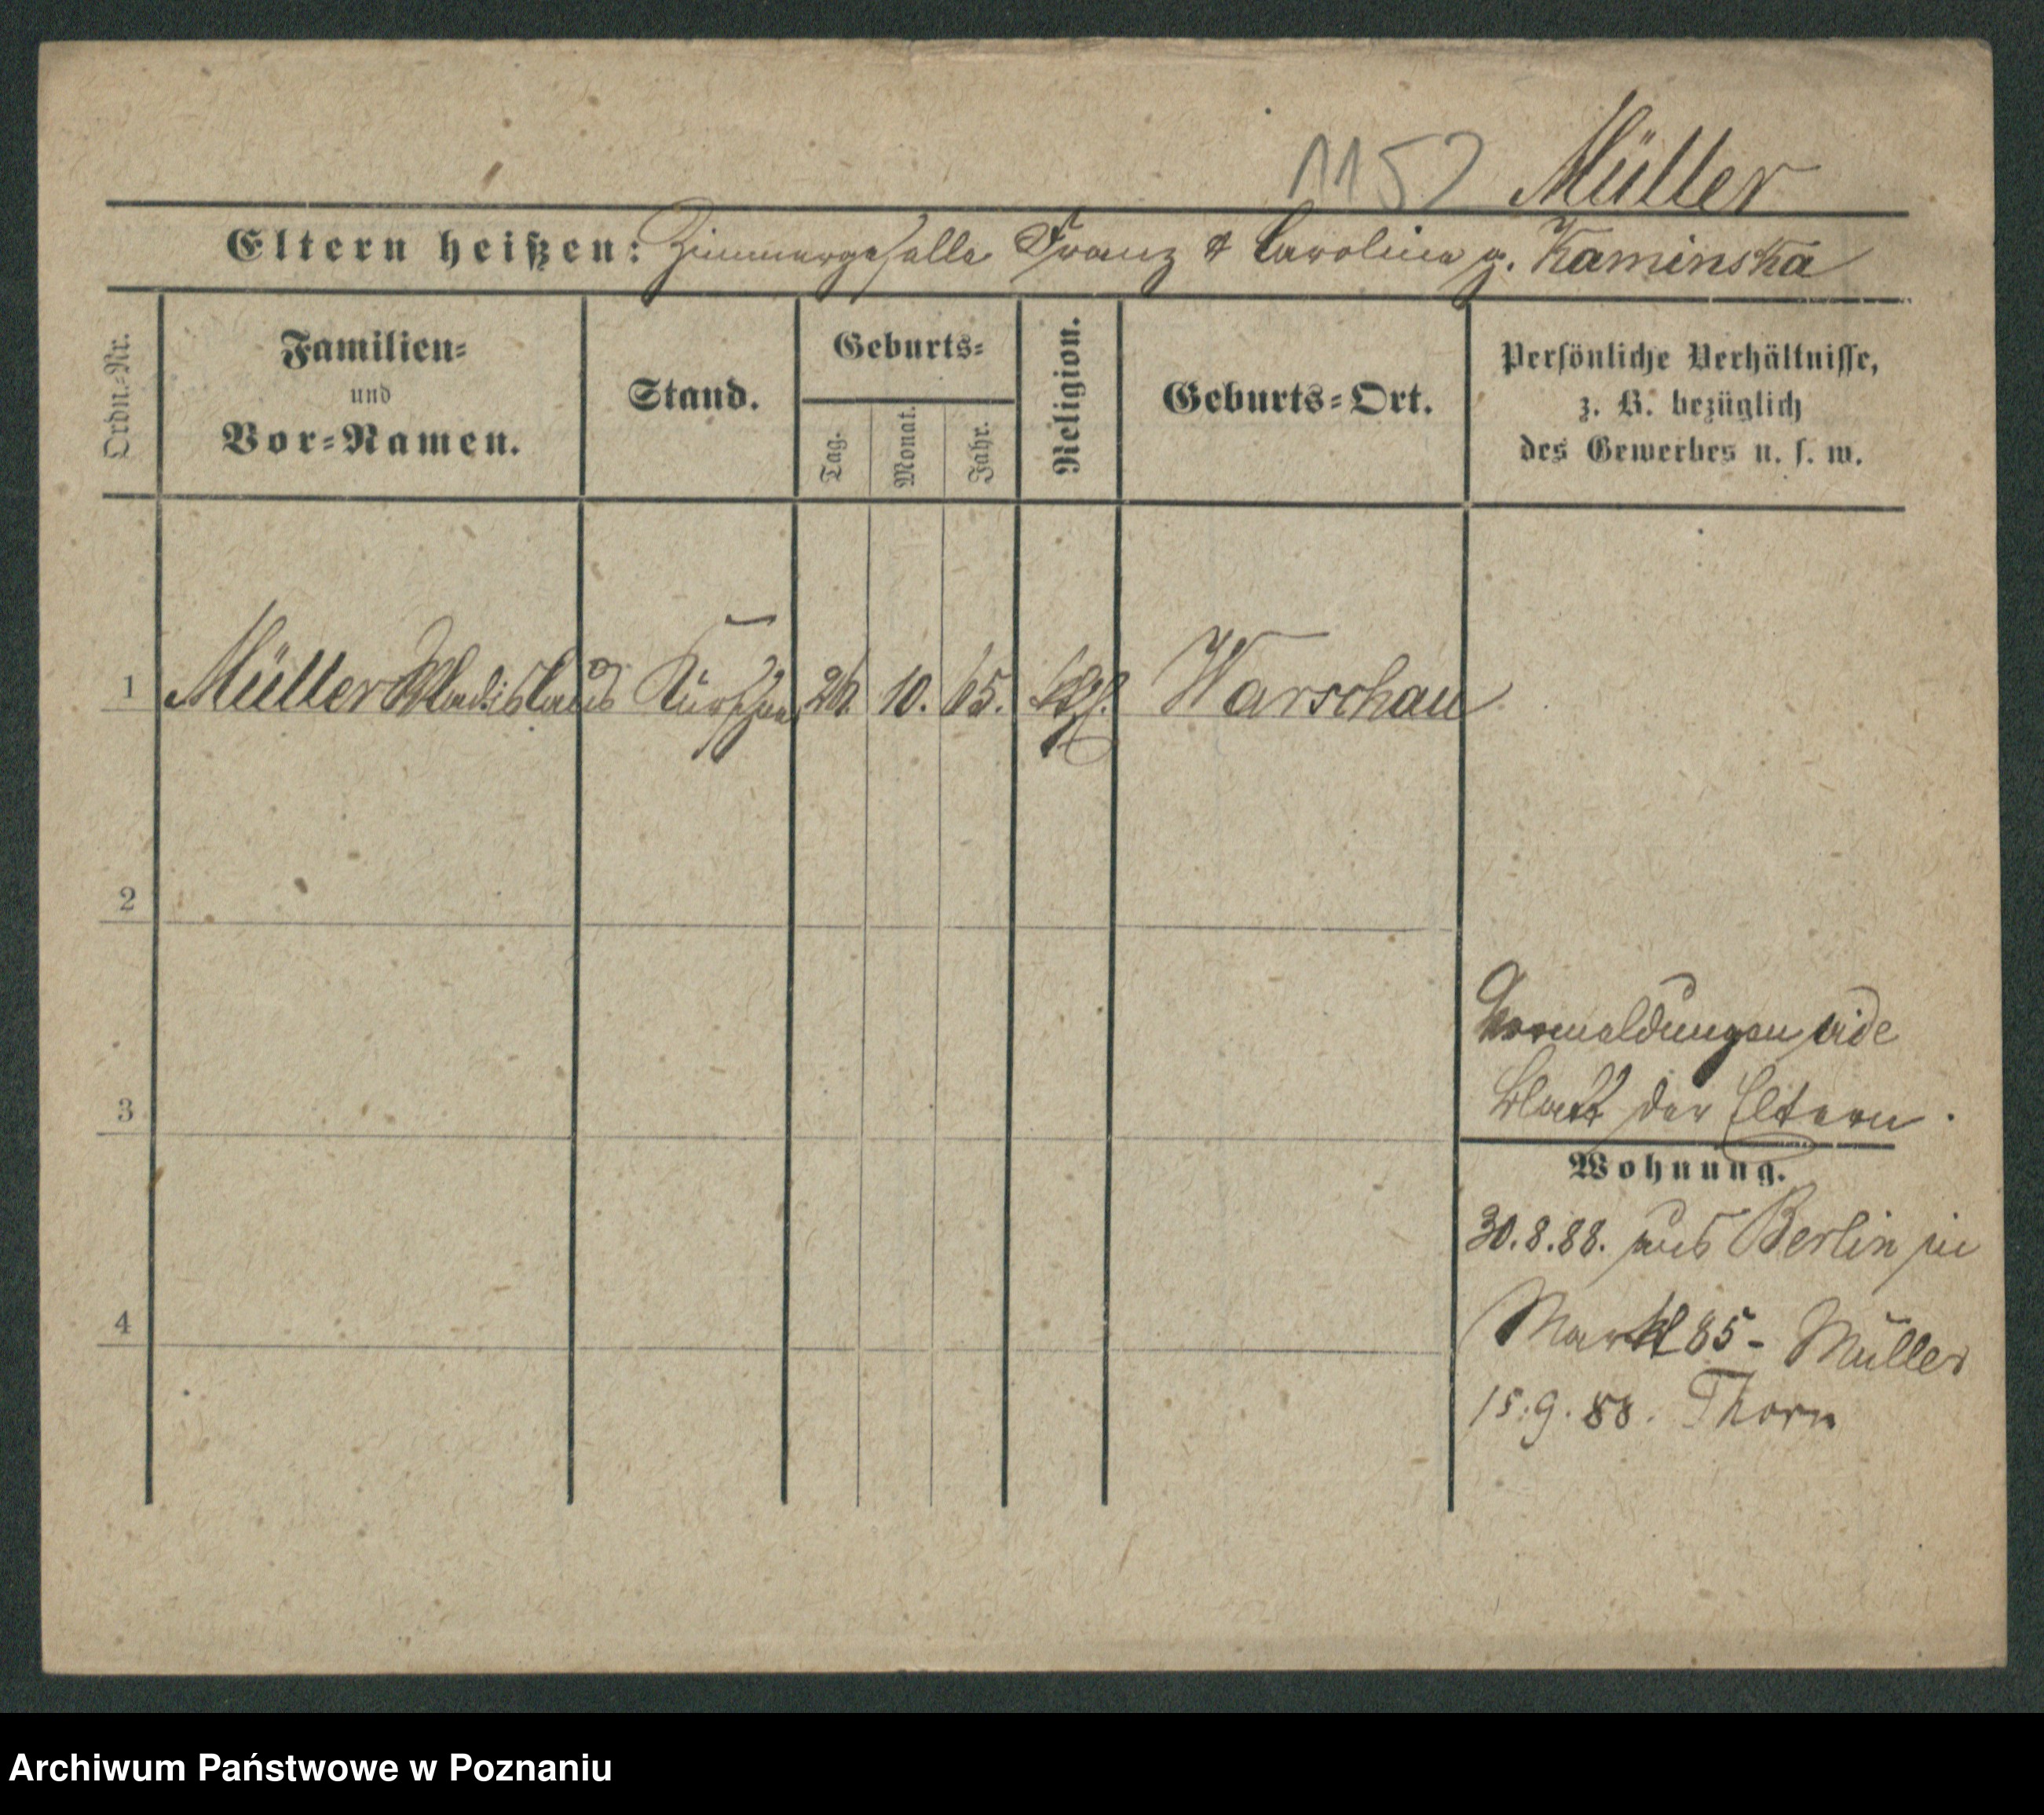 1152 Müller
Eltern heißen: Zimmergeselle Franz & Carolina g. Kaminska
Ordn.-Nr.
Familien-
und
Vor-Namen.
Stand.
Geburts-
Tag.
Monat.
Jahr.
Religion.
Geburts-Ort.
Persönliche Verhältnisse,
z. B. bezüglich
des Gewerbes u. s. w.
1 Müller Wladislaus Kürschner 26. 10. 65. kath. Warschau
2
Vormeldungen vide
3 Blatt der Eltern.
Wohnung.
30.8.88. aus Berlin in
4 Markt 85 - Müller
15.9.88. Thorn
Archiwum Państwowe w Poznaniu